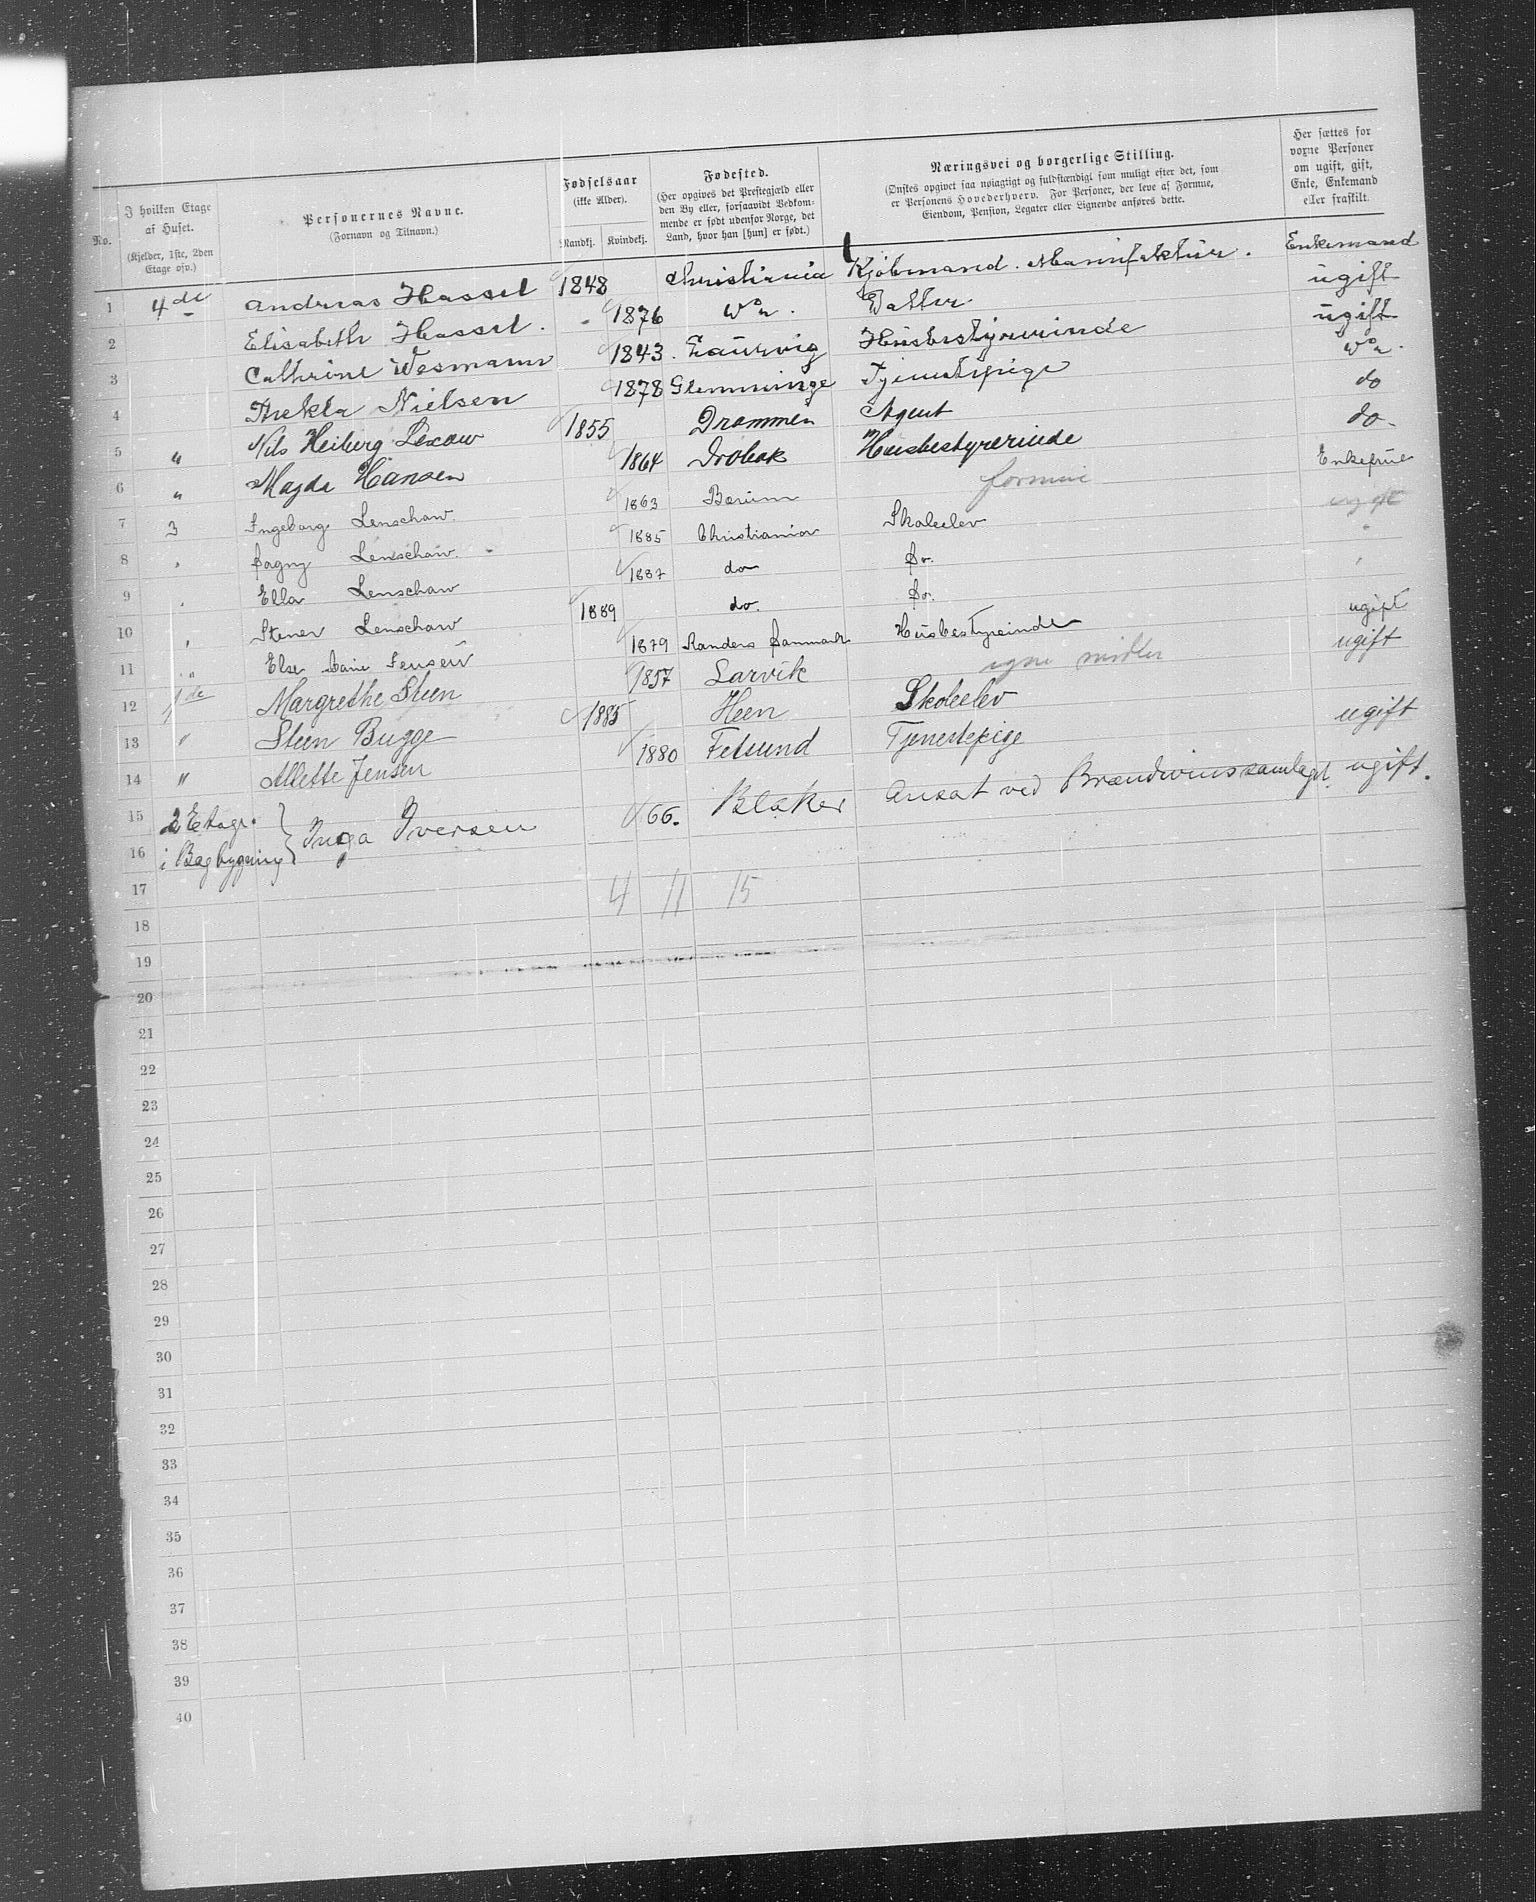 No.
I hvilken Etage af Huset.
(Kjelder, 1ste, 2den Etage osv.)
Personernes Navne.
(Fornavn og Tilnavn.)
Fødselsaar
(ikke Alder).
Mandkj. Kvindekj.
Fødested.
(Her opgives det Prestegjæld eller
den By eller, forsaavidt Vedkom-
mende er født udenfor Norge, det
Land, hvor han [hun] er født.)
Næringsvei og borgerlige Stilling.
(Ønskes opgivet saa nøiagtigt og fuldstændigt som muligt efter det, som
er Personens Hovederhverv. For Personer, der leve af Formue,
Eiendom, Pension, Legater eller Lignende anføres dette.
Her sættes for
voxne Personer
om ugift, gift,
Enke, Enkemand
eller fraskilt.
1 4de Andreas Hassel 1848 Christiania Kjøbmand. Manufaktur. Enkemand
2 Elisabeth Hassel. 1876 Datter ugift
3 Cathrine Wesmann 1843. Laurvig Husbestyrerinde ugift
4 Thekla Nielsen 1878 Glemminge Tjenestepige
5 " Nils Heiberg Lexow 1855 Drammen Agent do
6 " Magda Hansen 1864 Drøbak Husbestyrerinde do.
7 3 Ingeborg Lenschow. 1863 Bærum formue Enkefrue
8 Dagny Lenschow. 1885 Christiania Skoleelev ugift
9 Ella Lenschow 1887 do Do.
10 Stener Lenschow 1889 do. Do.
11 " Else Marie Jensen 1879 Randers Danmark Husbestyreinde ugift
12 1de Margrethe Steen 1857 Larvik egne midler ugift
13 " Steen Bugge 1885 Heen Skoleelev
14 " Alette Jensen 1880 Fetsund Tjenestepige ugift
15 2 Etage. Inga Iversen 66. Blaker Ansat ved Brændevinssamlaget ugift.
16 i Bagbygning
17 4 11 15
18
19
20
21
22
23
24
25
26
27
28
29
30
31
32
33
34
35
36
37
38
39
40